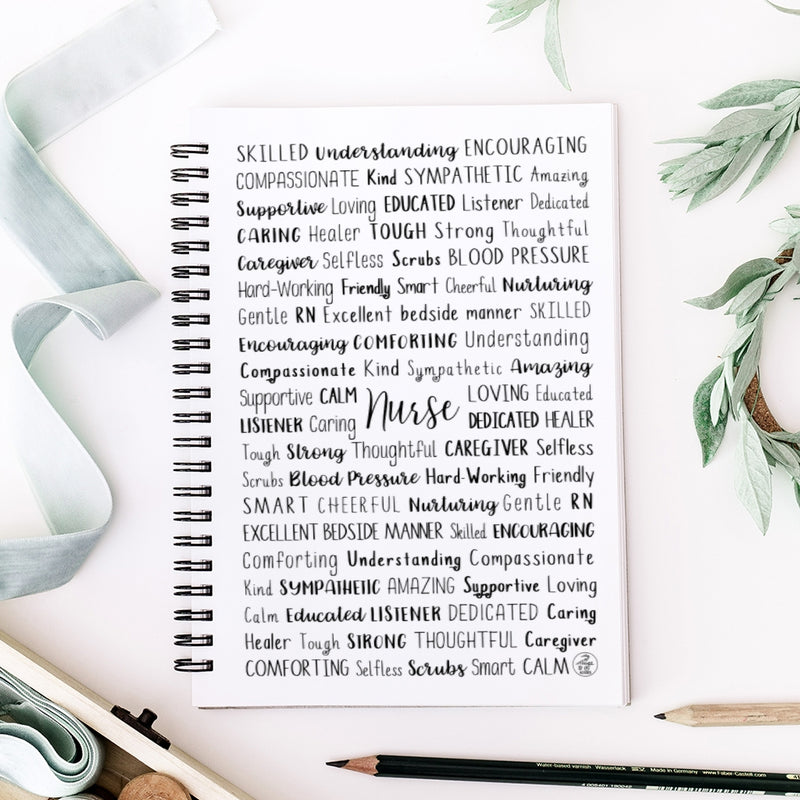 SKILLED Understanding ENCOURAGING
COMPASSIONATE Kind SYMPATHETIC Amazing
Supportive Loving EDUCATED Listener Dedicated
CARING Healer TOUGH Strong Thoughtful
Caregiver Selfless Scrubs BLOOD PRESSURE
Hard-Working Friendly Smart Cheerful Nurturing
Gentle RN Excellent bedside manner SKILLED
Encouraging COMFORTING Understanding
Compassionate Kind Sympathetic Amazing
Supportive CALM LOVING Educated
Nurse
LISTENER Caring DEDICATED HEALER
Tough Strong Thoughtful CAREGIVER Selfless
Scrubs Blood Pressure Hard-Working Friendly
SMART CHEERFUL Nurturing Gentle RN
EXCELLENT BEDSIDE MANNER Skilled ENCOURAGING
Comforting Understanding Compassionate
Kind SYMPATHETIC AMAZING Supportive Loving
Calm Educated LISTENER DEDICATED Caring
Healer Tough STRONG THOUGHTFUL Caregiver
COMFORTING Selfless Scrubs Smart CALM
Water-based varnish Wasserlack Made in Germany www.Faber-Castell.com